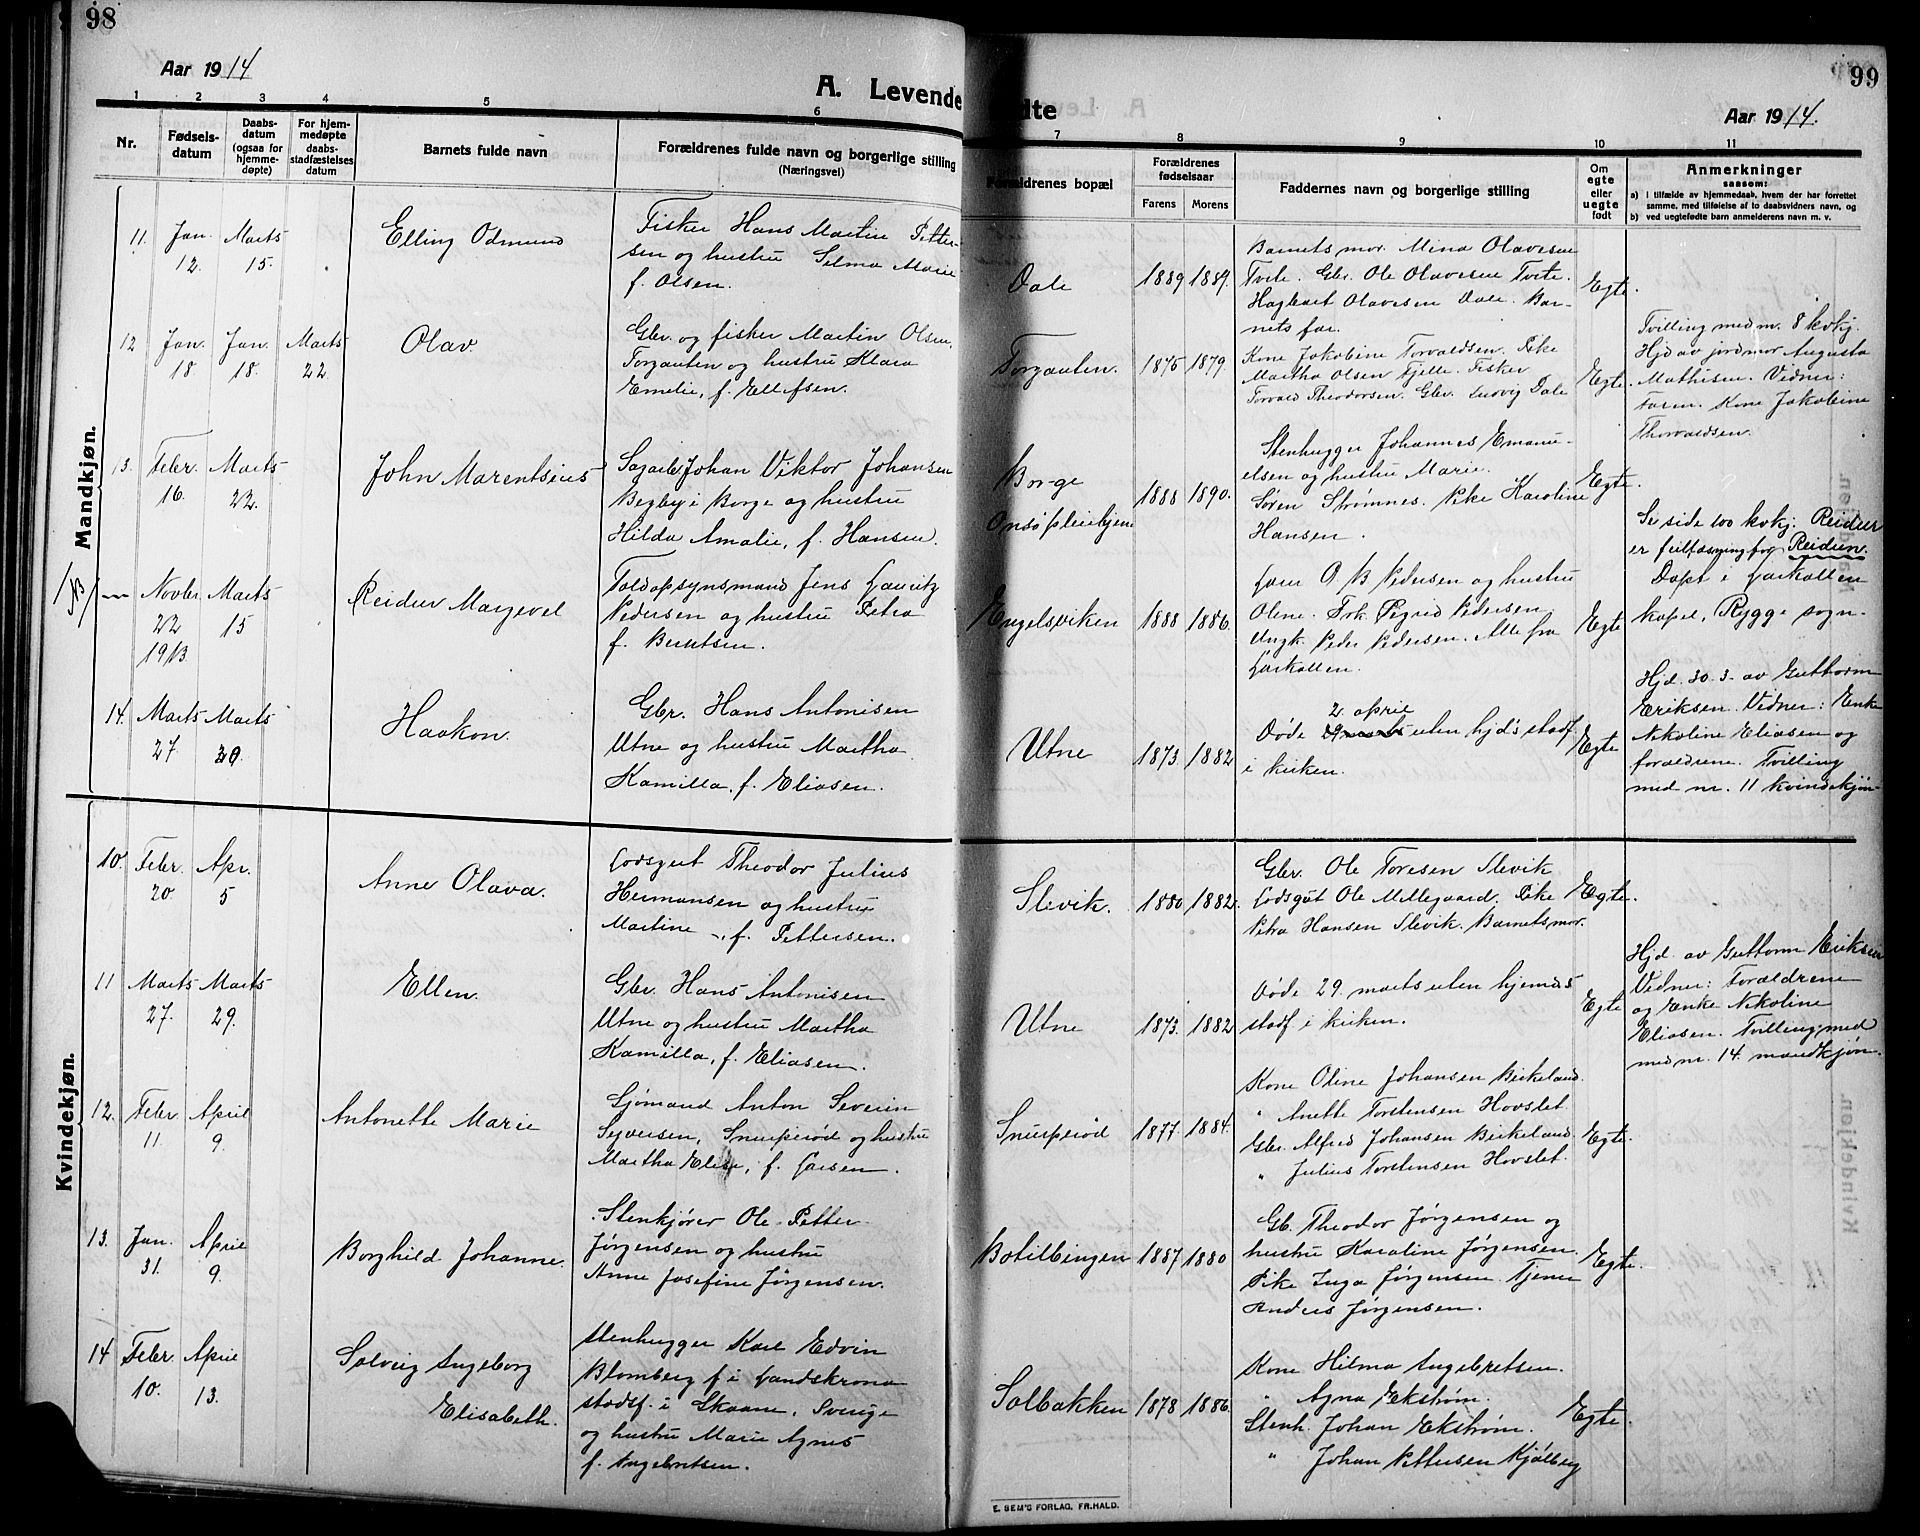 98
Aar 1914
A. Levende
1 2 3 4 5 6
Nr.
Fødsels-
datum
Daabs-
datum
(ogsaa for
hjemme-
døpte)
For hjem-
medøpte
daabs-
stadfæstelses
datum
Barnets fulde navn
Forældrenes fulde navn og borgerlige stilling
(Næringsvei)
Mandkjøn.
11. Jan. 12. Marts 15.
Elling Odmund
Fisker Hans Martin Petter-
sen og hustru Selma Marie
f. Olsen.
12 Jan. 18. Jan. 18. Marts 22.
Olav.
Gbr. og fisker Martin Olsen,
Torgauten og hustru Klara
Emelie, f. Ellefsen.
13. Febr. 16. Marts 22.
John Marentsius
Sagarb. Johan Viktor Johansen
Begby i Borge og hustru
Hilda Amalie, f. Hansen.
Novbr. 22 1913. Marts 15
Reidur Margevel
Toldopsynsmand Jens Lauritz
Pedersen og hustru Petra
f. Berntsen.
14. Marts 27. Marts 30.
Haakon.
Gbr. Hans Antonisen
Utne og hustru Martha
Kamilla, f. Eliasen.
Kvindekjøn.
10. Febr. 20. Apr. 5
Anne Olava.
Lodsgut Theodor Julius
Hermansen og hustru
Martine -, f. Pettersen.
11 Marts 27. Marts 29.
Ellen.
Gbr. Hans Antonisen
Utne og hustru Martha
Kamilla, f. Eliasen.
12. Febr. 11. April 9.
Antonette Marie
Sjømand Anton Severin
Syversen, Snurperød og hustru
Martha Elise, f. Larsen.
13. Jan. 31. April 9.
Borghild Johanne.
Stenkjører Ole Petter
Jørgensen og hustru
Anne Josefine Jørgensen.
14 Febr. 10. April 13.
Solveig Ingeborg
Elisabeth.
Stenhugger Karl Edvin
Blomberg f. i Landskrona
stadsf. i Skaane, Sverige
og hustru Marie Agnes
f. Ingebretsen.
99
dte
Aar 1914.
7 8 9 10 11
Forældrenes bopæl
Forældrenes
fødselsaar
Farens Morens
Faddernes navn og borgerlige stilling
Om
egte
eller
uegte
født
Anmerkninger
saasom:
a) i tilfælde av hjemmedaab, hvem der har forrettet
samme, med tilføielse af to daabsvidners navn, og
b) ved uegtefødte barn anmelderens navn m. v.
Dale 1889 1889.
Barnets mor. Mina Olavesen
Tvete. Gbr. Ole Olavesen Tvete.
Hagbart Olavesen Dale. Bar-
nets far.
Egte.
Torgauten. 1875 1879.
Kone Jakobine Torvaldsen. Pike
Martha Olsen Fjelle. Fisker
Torvald Theodorsen. Gbr. Ludvig Dale
Egte.
Tvilling med nr. 8 kvkj.
Hjd av jordmor Augusta
Mathisen. Vidner:
Faren. Kone Jakobine
Thorvaldsen.
Borge
Onsø pleiehjem
1888 1890.
Stenhugger Johannes Emanu-
elsen og hustru Marie.
Søren Strømnes. Pike Karoline
Hansen.
Egte.
Engelsviken 1888 1886.
Lars O. B. Pedersen og hustru
Oline. Frk. Sigrid Pedersen.
Ungk. Peder Pedersen. Alle fra
Larkollen.
Egte
Se side 100 kvkj. Reidur
er feillæsning for Reidun.
Døpt i Larkollen
kapel, Rygge sogn.
Utne 1873. 1882
2. april
Døde 29 marts uten hjd's stadf.
i kirken.
Egte
Hjd. 30. 3. av Guttorm
Eriksen. Vidner: Enke
Nikoline Eliasen og
forældrene. Tvilling
med nr. 11 kvindekjøn-
Slevik. 1880 1882.
Gbr. Ole Toresen Slevik
Lodsgut Ole Mellegaard. Pike
Petra Hansen Slevik. Barnets mor.
Egte.
Utne 1873. 1882
Døde 29. marts uten hjemds
stadf. i kirken.
Egte
Hjd. av Guttorm Eriksen
Vidner: Forældrene
og Enke Nikoline
Eliasen. Tvilling med
med nr. 14. mandkjøn.
Snurperød 1877. 1884.
Kone Oline Johansen Birkeland.
" Anette Torstensen Hovslet.
Gbr. Alfred Johansen Birkeland.
" Julius Torstensen Hovslet.
Egte.
Botilbingen 1887 1880
Gb. Theodor Jørgensen og
hustru Karoline Jørgensen.
Pike Inga Jørgensen. Tjener
Anders Jørgensen.
Egte.
Solbakken 1878 1886.
Kone Hilma Ingebretsen.
" Agna Ekstrøm.
Stenh. Johan Ekstrøm.
" Johan Pettersen Kjølberg
Egte.
E. SEM'S FORLAG, FR.HALD.